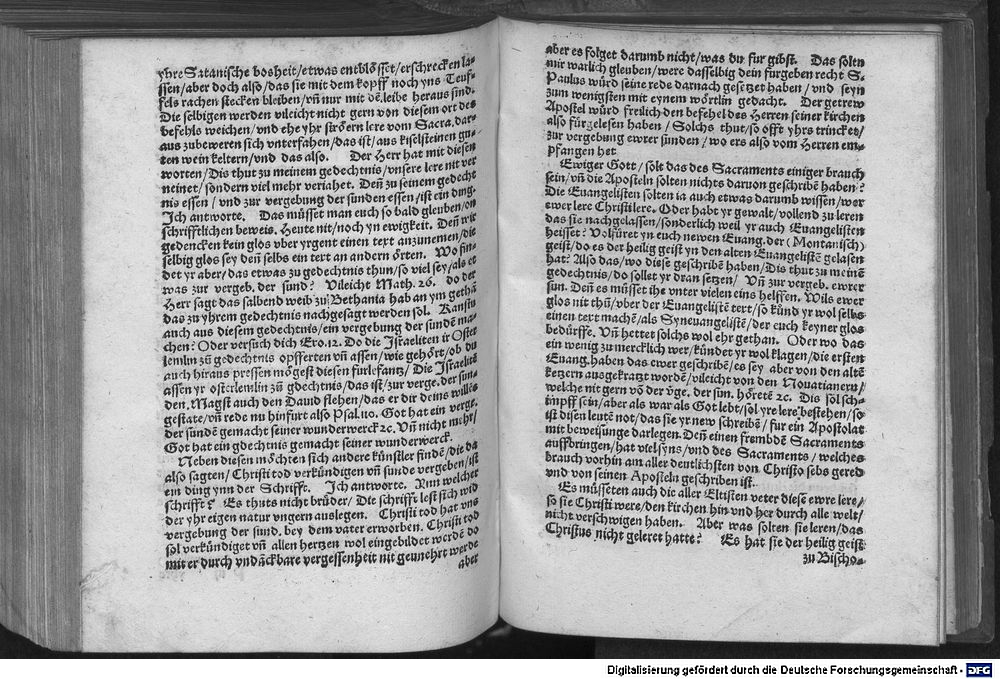 yhre Satanische bosheit/etwas entblösset/erschrecken las-
ssen/aber doch also/das sie mit dem kopff noch yns Teuf-
fels rachen stecken bleiben/vñ nur mit dē leibe heraus sind.
Die selbigen werden vileicht nicht gern von diesem ort des
befehls weichen/vnd ehe yhr lere vom Sacra. dar-
aus zubeweren sich vnterfahen/das ist/aus kiselsteinen gu-
ten wein keltern/vnd das also. Der Herr hat mit diesen
worten/Dis thut zu meinem gedechtnis/vnsere lere nit ver
neinet/sondern viel mehr veriahet. Deñ zu seinem gedecht
nis essen/vnd zur vergebung der sunden essen/ist ein ding.
Ich antworte. Das müsset man euch so bald gleuben/on
schrifftlichen beweis. Heute nit/noch yn ewigkeit. Deñ wir
gedencken kein glos vber yrgent einen text anzunemen/die
selbig glos sey deñ selbs ein text an andern örten. Wo fin-
det yr aber/das etwas zu gedechtnis thun/so viel sey/als es
was zur vergeb. der sund? Vileicht Math. 26. do der
Herr sagt das salbend weib zu Bethania hab an ym gethā
das zu yhrem gedechtnis nachgesagt werden sol. Kanstu
auch aus diesem gedechtnis/ein vergebung der sunden ma-
chen? Oder versuch dich Exo. 12. Do die Israeliten ir Oster
lemlin zů gedechtnis opfferten vñ assen/wie gehört/ob du
auch hiraus pressen mögest diesen furlefantz/Die Israelitē
assen yr osterlemlin zů gdechtnis/das ist/zur verge. der sun-
den. Magst auch den Dauid flehen/das er dir deins willēs
gestate/vñ rede nu hinfurt also Psal. 110. Got hat ein verge.
der sundē gemacht seiner wunderwerck ꝛc. Vñ nicht mehr/
Got hat ein gdechtnis gemacht seiner wunderwerck.
Neben diesen möchten sich andere künstler finden/die da
also sagten/Christi tod verkündigen vñ sunde vergeben/ist
ein ding ynn der Schrifft. Ich antworte. Nun welcher
schrifft? Es thuts nicht brüder/Die schrifft lest sich wid
der yhr eigen natur vngern auslegen. Christi tod hat vns
vergebung der sund. bey dem vater erworben. Christi tod
sol verkündiget vñ allen hertzen wol eingebildet werdē do
mit er durch vndāckbare vergessenheit nit geunehrt werde
aber
aber es folget darumb nicht/was du fur gibst. Das solten
wir warlich gleuben/were dasselbig dein furgeben recht S.
Paulus würd seine rede darnach gesetzet haben/vnd seyn
zum wenigsten mit eynem wörtlin gedacht. Der getrew
Apostel würd freilich den befehel des Herren seiner kirchen
also fürgelesen haben/Solchs thut/so offt yhrs trincket/
zur vergebung ewrer sunden/wo ers also vom Herren em-
pfangen het.
Ewiger Gott/solt das des Sacraments einiger brauch
sein/vñ die Aposteln solten nichts daruon geschribē haben?
Die Euangelisten solten ia auch etwas darumb wissen/wer
ewer lere Christi lere. Oder habt yr gewalt/vollend zu leren
das sie nachgelassen/sonderlich weil yr auch Euangelisten
heisset? Volfüret yn euch newen Euang. der (Montanisch)
geist/do es der heilig geist yn den alten Euangelistē gelasen
hat? Also das/wo diese geschribē haben/Dis thut zu meinē
gedechtnis/do sollet yr dran setzen/Vñ zur vergeb. ewrer
sun. Deñ es müsset ihe vnter vielen eins helffen. Wils ewer
glos nit thūn/vber der Euangelistē text/so künd yr wol selbs
einen text machē/als Syneuangelistē/der euch keyner glos
bedürffe. Vñ hettet solchs wol ehr gethan. Oder wo das
ein wenig zu mercklich wer/kündet yr wol klagen/die ersten
Euang. haben das ewer geschribē/es sey aber von den altē
ketzern ausgekratzt wordē/vileicht von den Nouatianern/
welche nit gern vō der v̄ge. der sun. höretē ꝛc. Dis sol sch-
impff sein/aber als war als Got lebt/sol yre lere bestehen/so
ist disen leutē not/das sie yr new schreibē/fur ein Apostolat
mit beweisunge darlegen. Deñ einen frembdē Sacraments
auffbringen/hat viel syns/vnd des Sacraments/welches
brauch vorhin am aller deutlichsten von Christo sebs gered
vnd von seinen Aposteln geschriben ist.
Es müsseten auch die aller Eltisten veter diese ewre lere/
so sie Christi were/den kirchen hin vnd her durch alle welt/
nicht verschwigen haben. Aber was solten sie leren/das
Christus nicht geleret hatte? Es hat sie der heilig geist
zu Bischo-
Digitalisierung gefördert durch die Deutsche Forschungsgemeinschaft - DFG